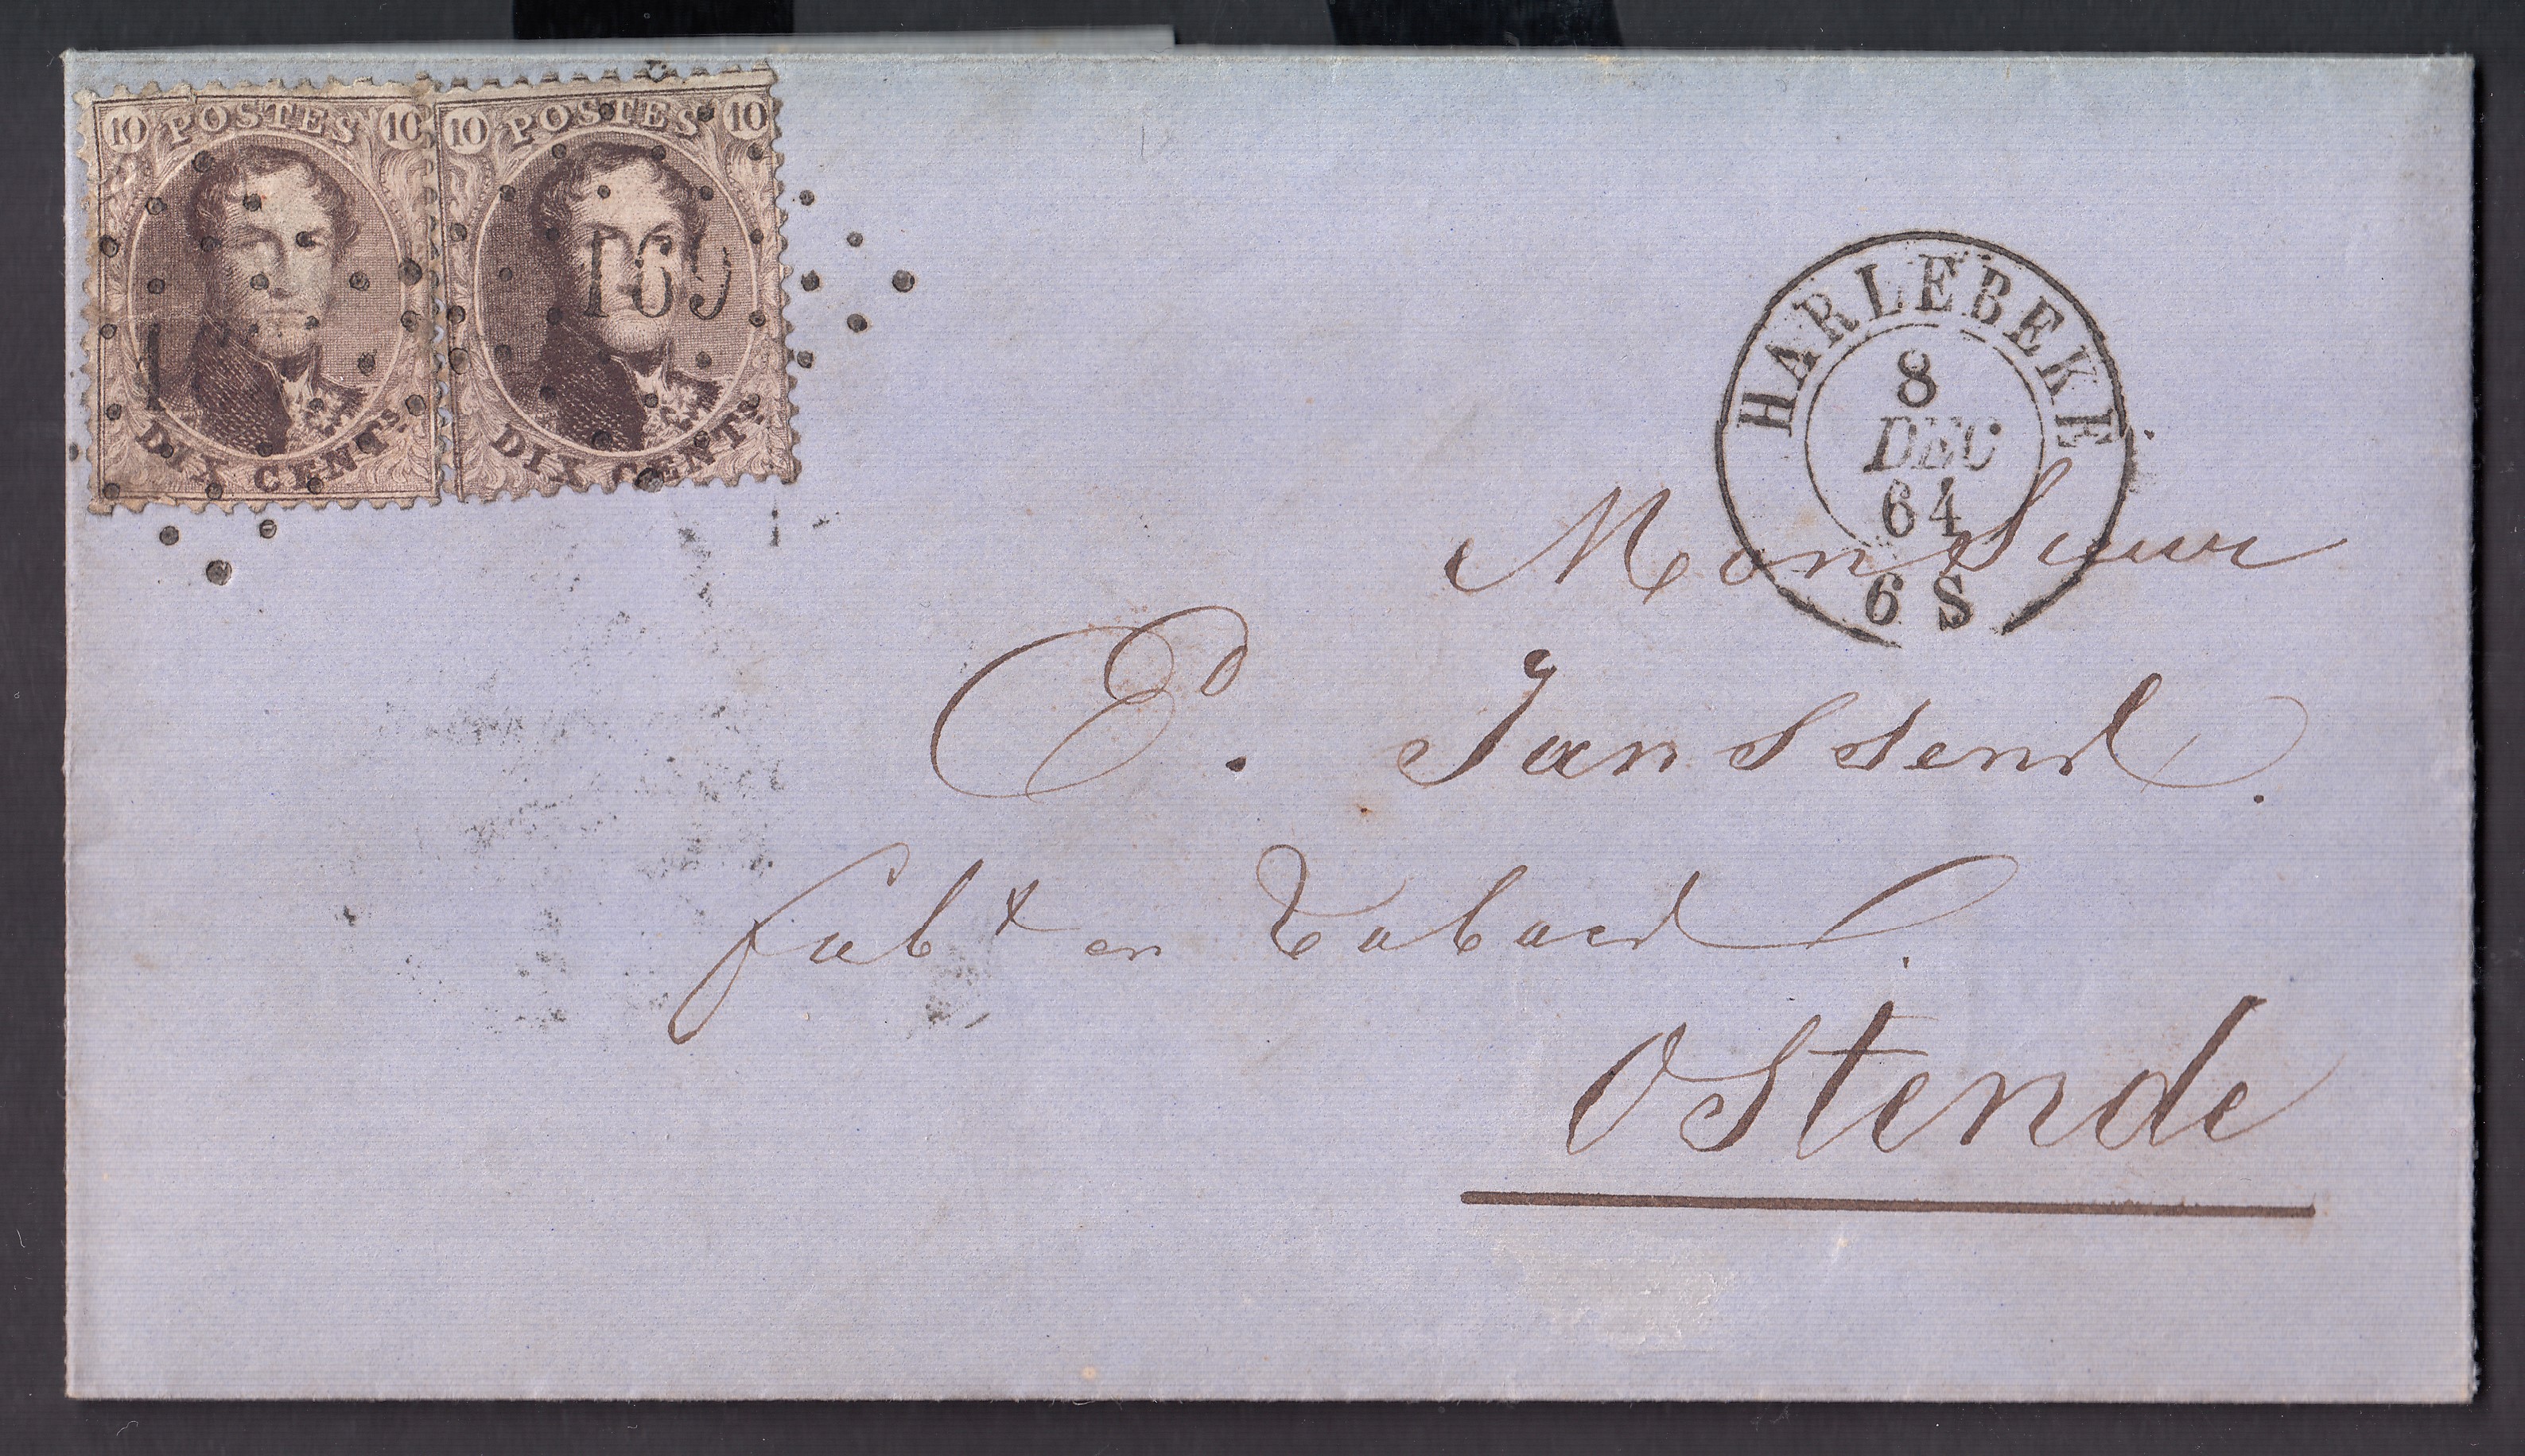 10 POSTES 10
DIX CENTS
10 POSTES 10
165
DIX CENTS
HARLEBEKE
8
DEC
64
6 S
Monsieur
Ed. Janssens.
fabt en Tabacs.
Ostende